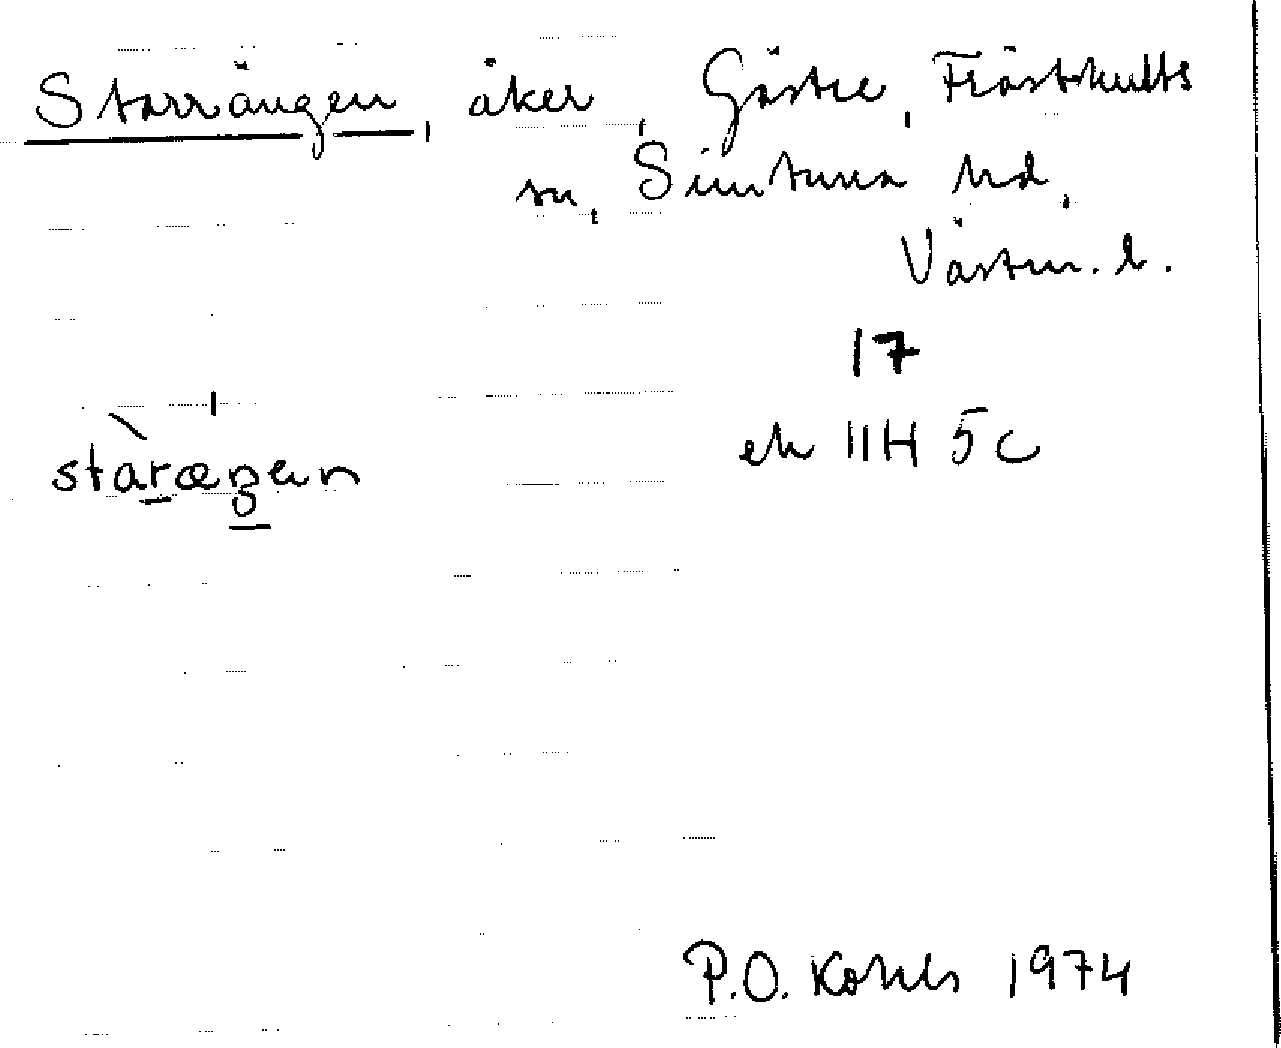 Starrängen, åker, Gästre, Frösthults
sn, Simtuna hd,
Västm. l.
17
ek 11H 5c
staræŋen
P.O. Kohls 1974